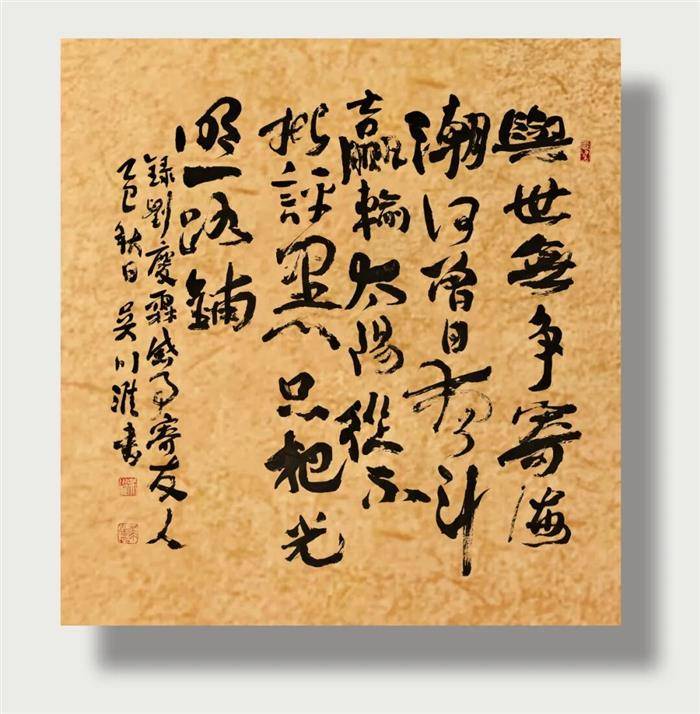 與世無爭寄海
潮何曾日夜斗
贏輸太陽從不
批評黑只把光
明一路鋪
錄劉慶霖感事寄友人
乙巳秋日吳川淮書